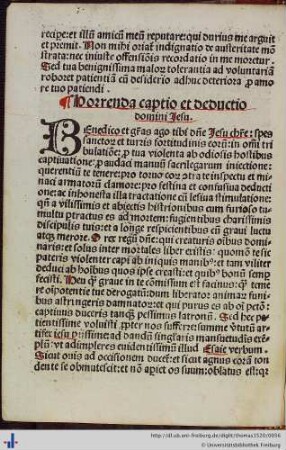 recipe: et illũ amicũ meũ reputare: qui durius me arguit
et premit. Non mihi oriat̃ indignatio de austeritate mõ
strata: nec iniuste offensiõis recordatio in me moretur.
Sed tua benignissima maior tolerantia ad voluntariã
roboret patientiã cũ desiderio adhuc deteriora ꝓ amo
re tuo patiendi.
¶ Horrenda captio et deductio
domini Jesu.
BEnedico et gr̃as ago tibi dñe Jesu chr̃e: spes
sanctoꝝ et turris fortitudinis eorũ: in oĩ tri
bulatiõe: ꝓ tua violenta ab odiosis hostibus
captiuatione: ꝓ audaci manuũ sacrilegarum iniectione:
querentiũ te tenere: ꝓ toruo coꝝ cõtra te inspectu et mi
naci armatorũ clamore: pro festina et confusiua deducti
one: ac inhonesta illa tractatione cũ lesiua stimulatione:
qñ a vilissimis et abiectis histrionibus cum furioso tu
multu ptractus es ad mortem: fugientibus charissimis
discipulis tuis: et a longe respicientibus cũ graui luctu
atqꝫ merore. O rex regũ de⁹: qui creaturis oĩbus domi
naris: et solus inter mortales liber existis: quomõ te sic
pateris violenter capi ab iniquis manib⁹: et tam viliter
deduci ab hoĩbus quos ipse creasti: et quib⁹ bonũ semꝑ
fecisti. Heu ꝙ graue in te cõmissum est facinus: ꝙ teme
re oĩpotentie tue derogatũ: dum liberator animar̃ funi
bus astringeris damnatoꝝ: et qui purus es ab oĩ pctõ:
captiuus duceris tanꝗꝫ pessimus latronũ. Sed hec pa
tientissime voluisti ꝓpter nos sufferre: summe v̓tutũ ar̃
tifex iesu piissime: ad dandũ singularis mansuetudis exẽ
plũ: vt adimpleres euidentissimũ illud Esaie verbum.
Sicut ouis ad occisionem ducet̃: et sicut agnus corã ton
dente se obmutescit: et nõ apiet os suum: oblatus est: qꝛ
http://dl.ub.uni-freiburg.de/diglit/thomas1520/0006
© Universitätsbibliothek Freiburg